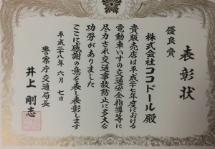 表彰状
優良賞
株式会社ココドール殿
貴販売店は平成二十七年度における
電動車いすの交通安全指導等に
尽力され交通事故防止に多大な
功労がありました
ここに感謝の意を表し表彰します
平成二十八年六月七日
警察庁交通局長
井上剛志